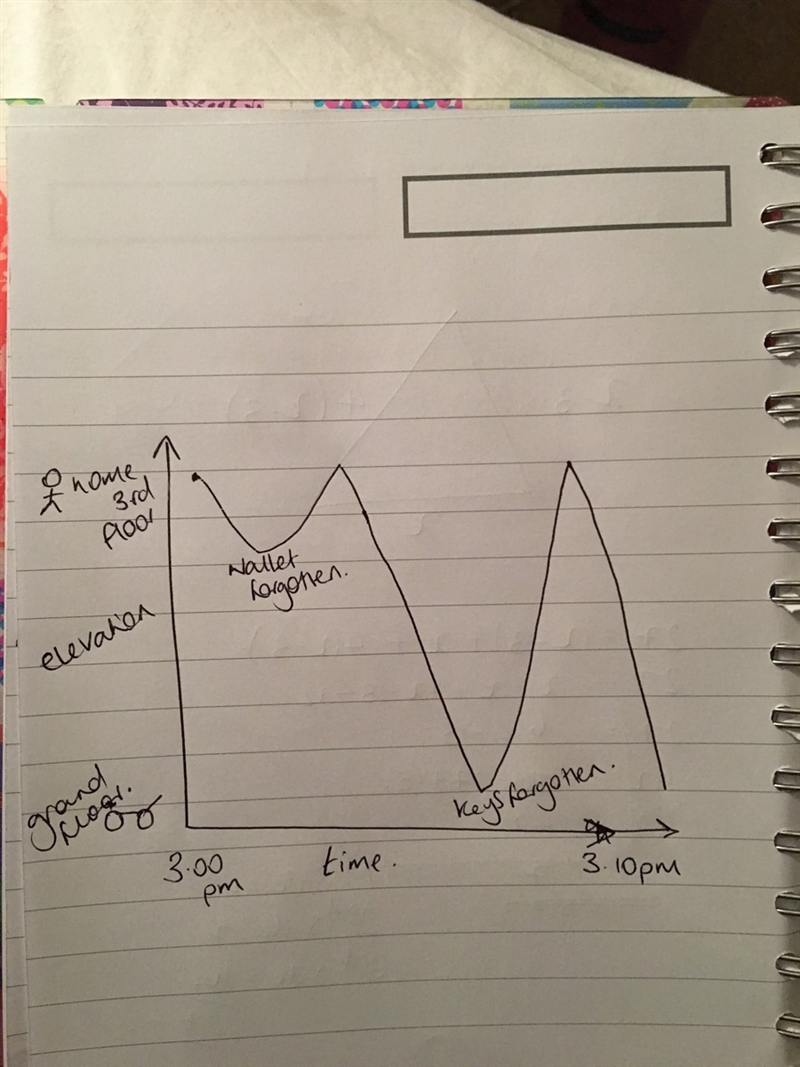 home
3rd
floor
Wallet
forgotten.
elevation
ground
floor.
Keys forgotten.
3.00
pm
time.
3.10pm